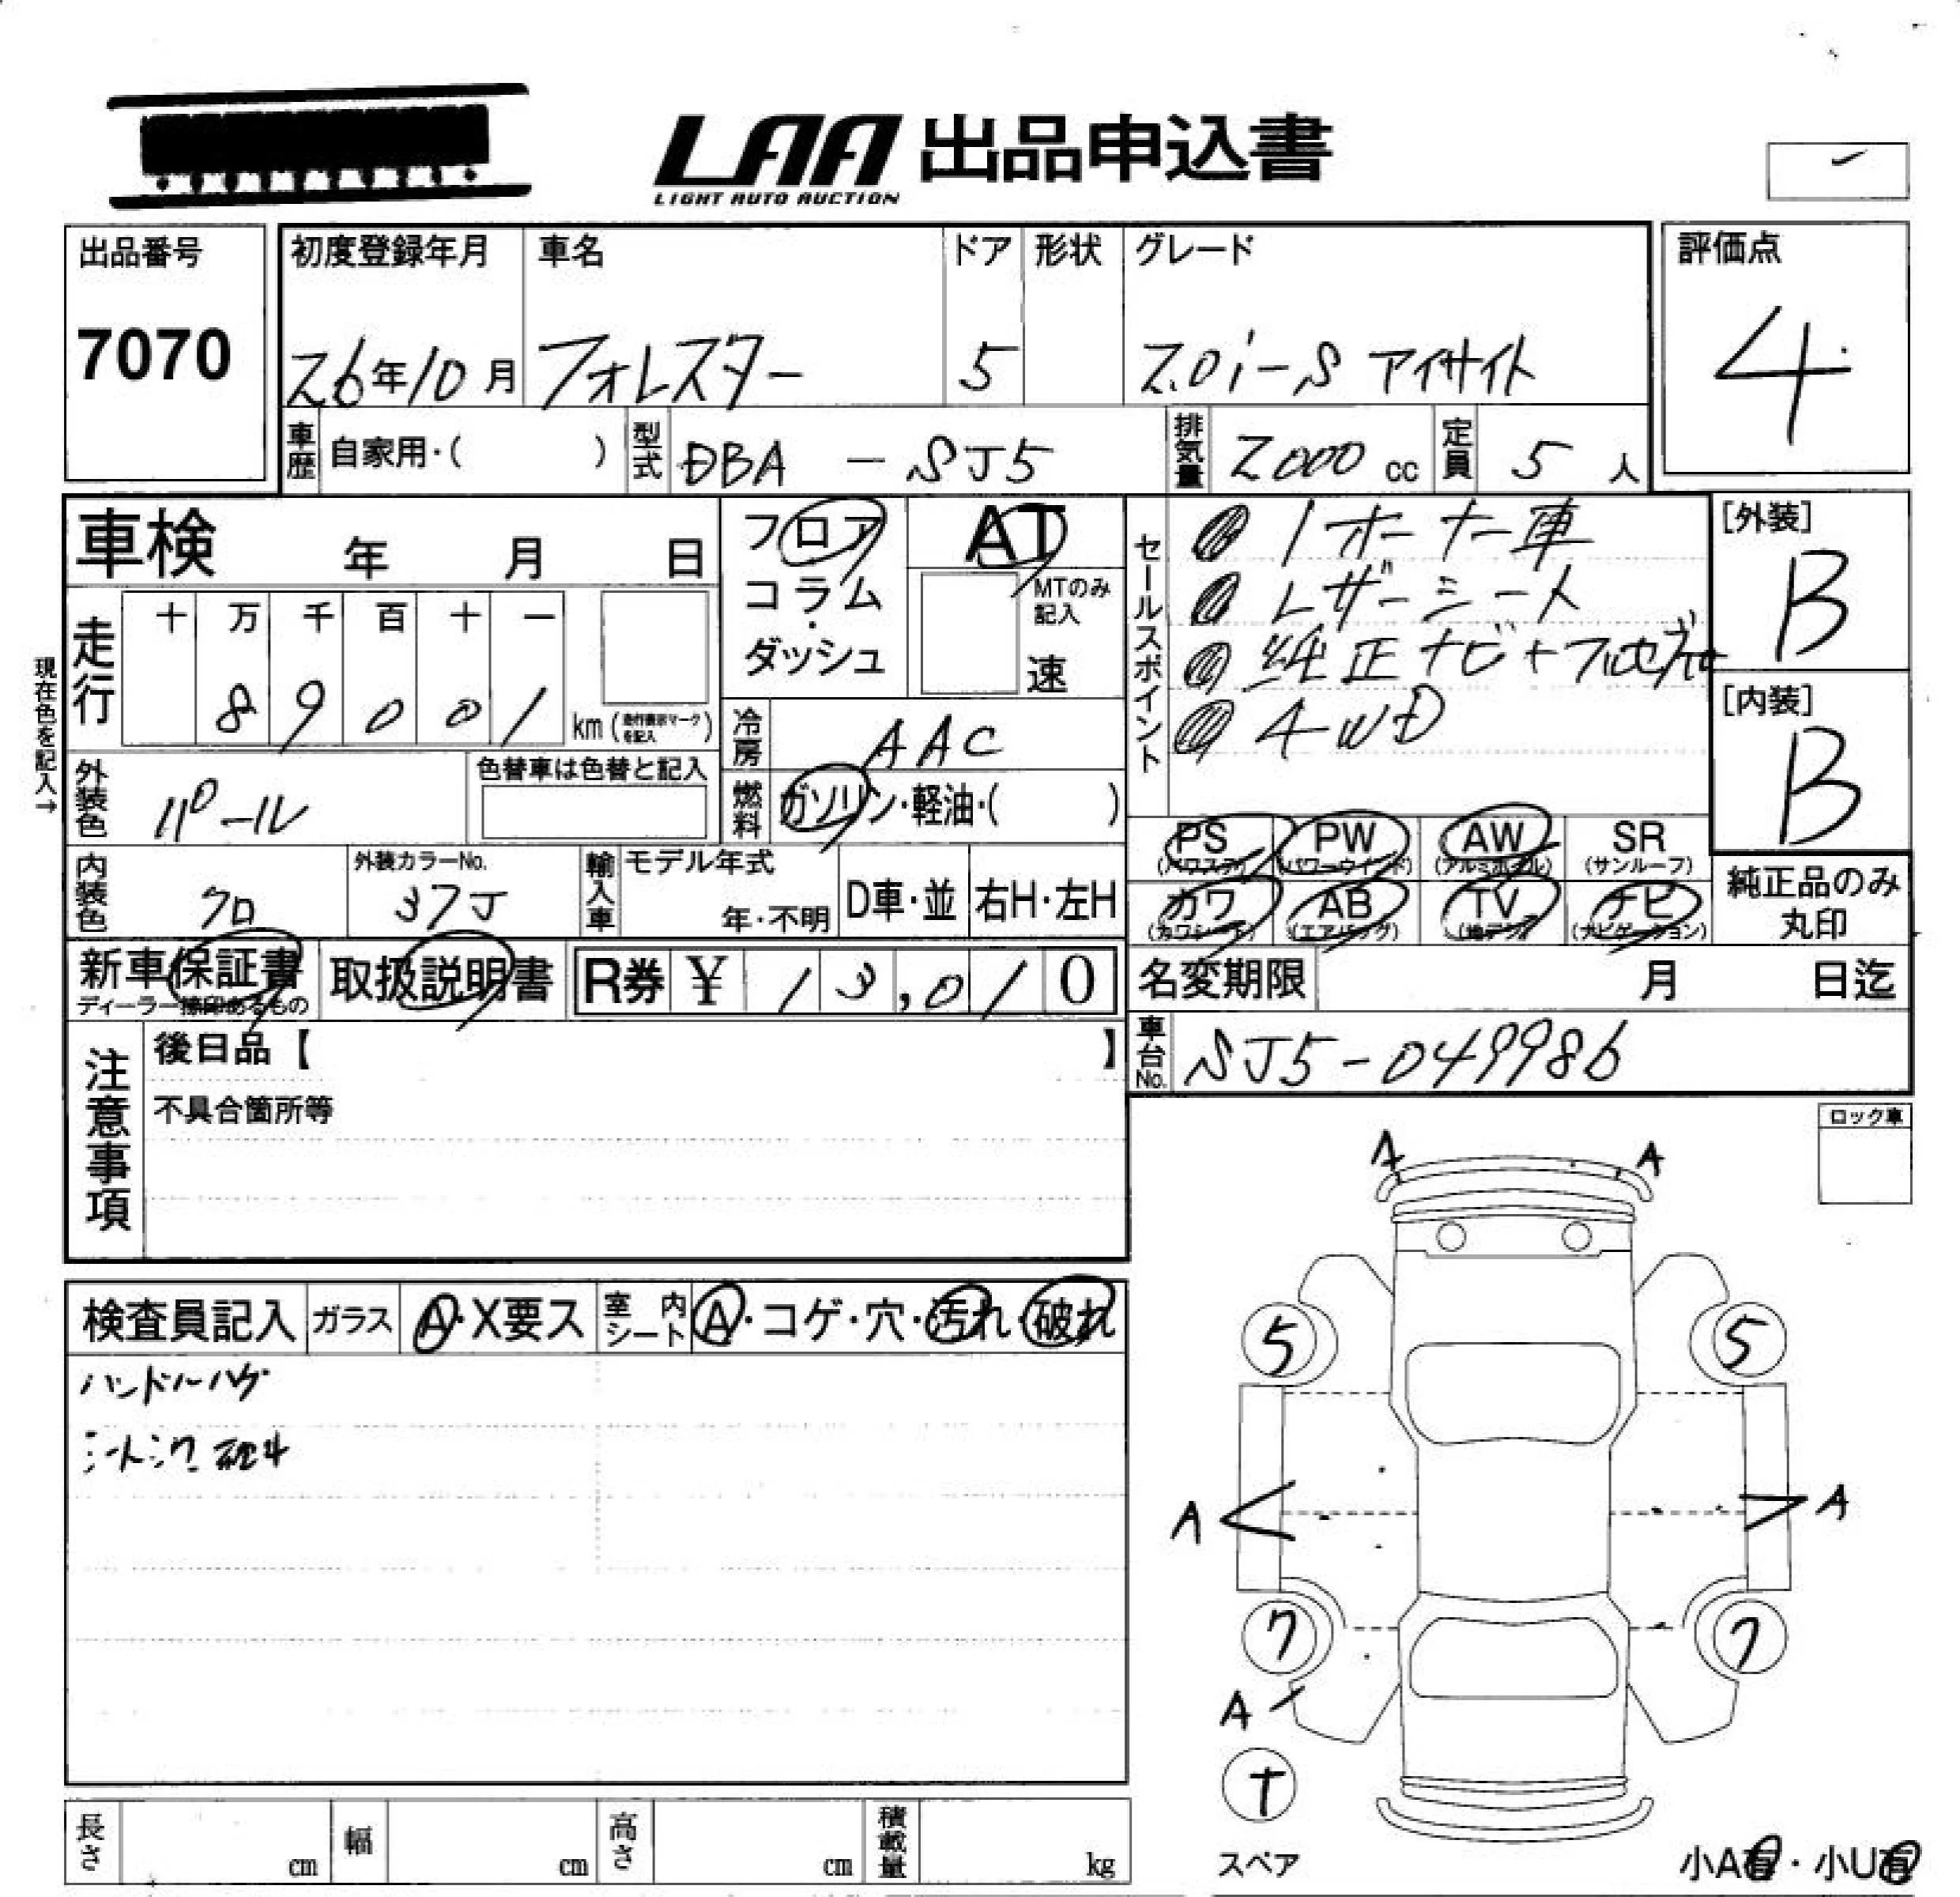 LAA 出品申込書
LIGHT AUTO AUCTION
出品番号
7070
初度登録年月
26年10月
車名
フォレスター
ドア
5
形状
グレード
2.0i-S アイサイト
評価点
4
車歴 自家用・( )
型式 DBA - SJ5
排気量 2000 cc
定員 5 人
車検 年 月 日
フロア
コラム・
ダッシュ
AT
MTのみ
記入
速
セールスポイント
1オーナー車
レザーシート
純正ナビ+フルセグTV
4WD
[外装]
B
[内装]
B
現在色を記入→
走行
十 万 千 百 十 一
8 9 0 0 1 km (走行表示マークを記入)
冷房 AAC
外装色 パール
色替車は色替と記入
燃料 ガソリン・軽油・( )
PS PW AW SR
(パワステ) (パワーウインド) (アルミホイル) (サンルーフ)
カワ AB TV ナビ
(カワシート) (エアバッグ) (地デジ) (ナビゲーション)
純正品のみ
丸印
内装色 クロ
外装カラーNo.
37J
輸入車
モデル年式
年・不明
D車・並
右H・左H
新車保証書
ディーラー捺印あるもの
取扱説明書
R券 ¥ 13,010
名変期限 月 日迄
車台No. SJ5-049986
注意事項
後日品【 】
不具合箇所等
ロック車
検査員記入
ガラス A・X要ス
室内シート A・コゲ・穴・汚れ・破れ
ハンドルハゲ
A A
5 5
A A
7 7
A
T
スペア
小A有・小U有
長さ cm
幅 cm
高さ cm
積載量 kg